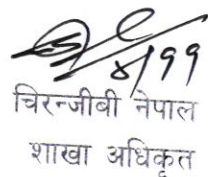 ४/११
चिरन्जीबी नेपाल
शाखा अधिकृत